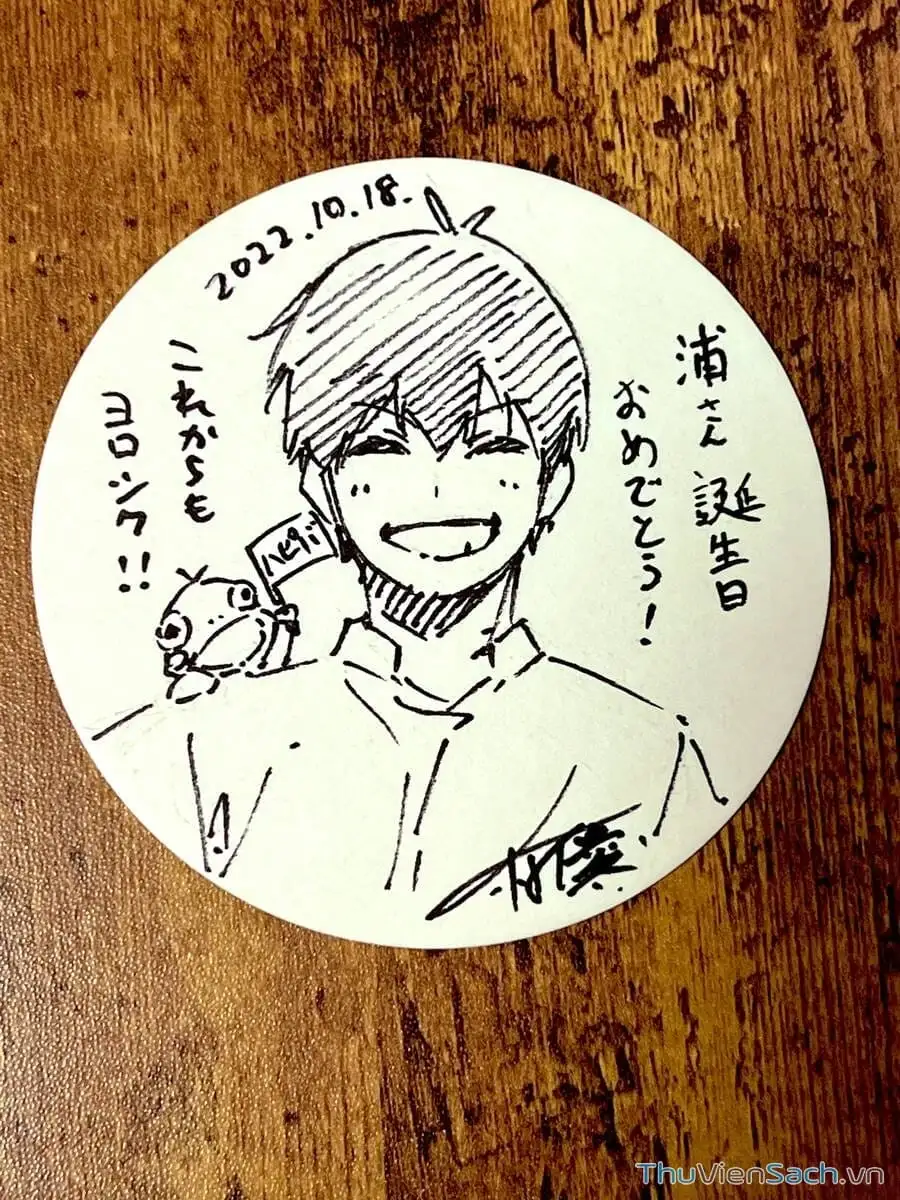 2022.10.18.
浦さん 誕生日
おめでとう!
これからも
ヨロシク!!
ハピバ
ThuVienSach.vn